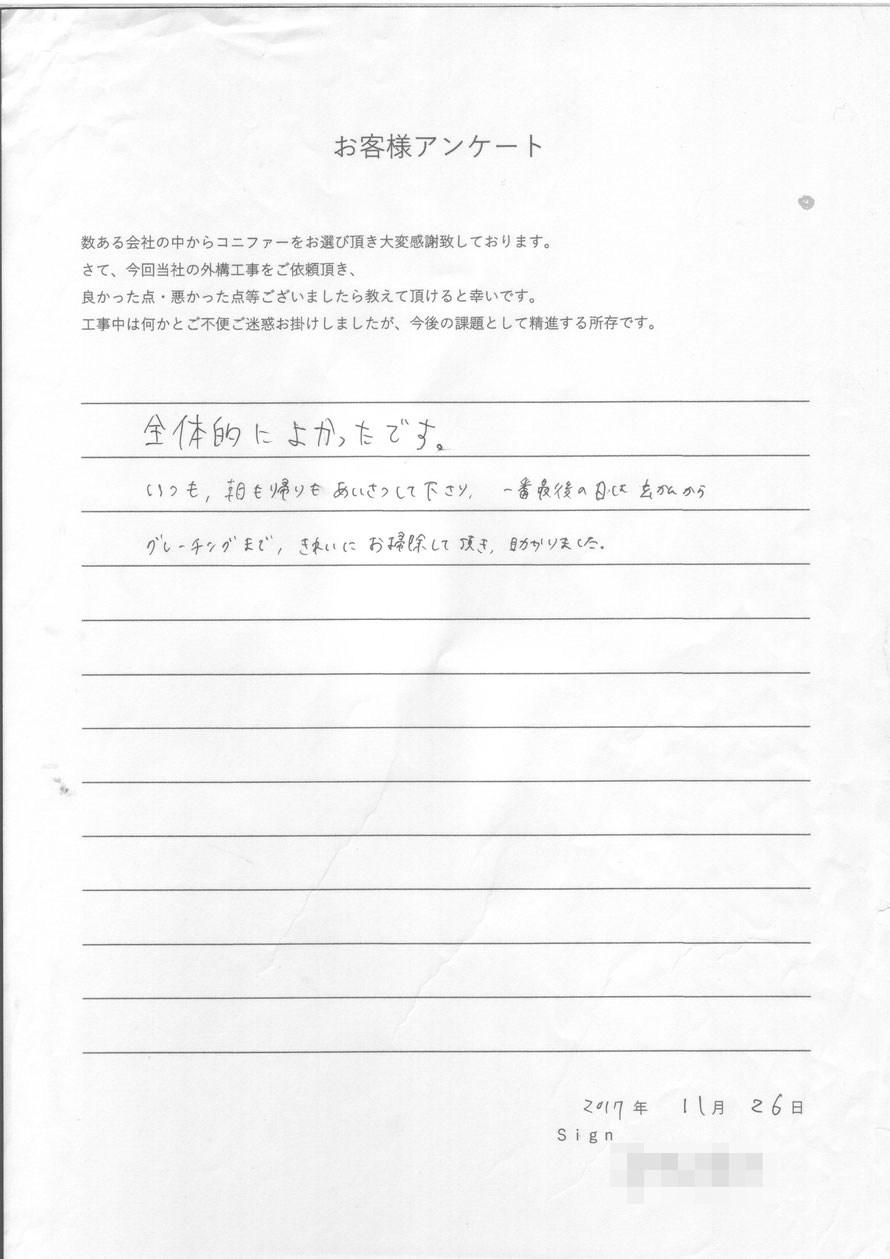 お客様アンケート
数ある会社の中からコニファーをお選び頂き大変感謝致しております。
さて、今回当社の外構工事をご依頼頂き、
良かった点・悪かった点等ございましたら教えて頂けると幸いです。
工事中は何かとご不便ご迷惑お掛けしましたが、今後の課題として精進する所存です。
全体的によかったです。
いつも,朝も帰りもあいさつして下さり,一番最後の日は玄かんから
グレーチングまで,きれいにお掃除して頂き,助かりました。
2017年 11月 26日
Sign